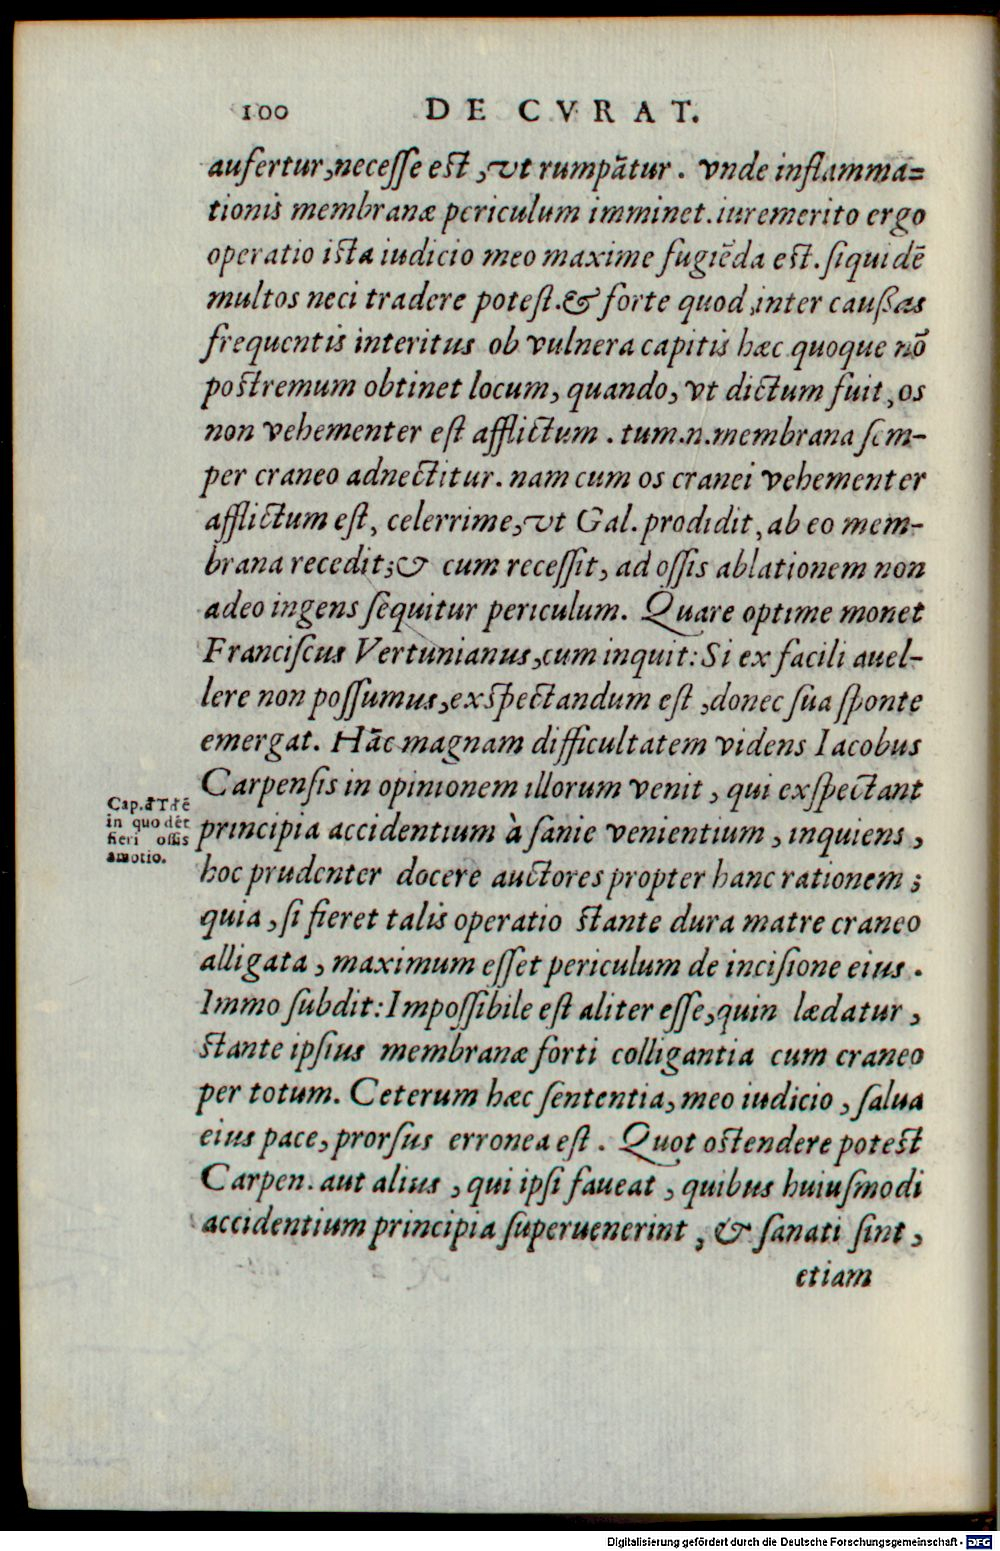 100 DE CVRAT.
aufertur, necesse est, vt rumpātur. vnde inflamma=
tionis membranæ periculum imminet. iure merito ergo
operatio ista iudicio meo maxime fugiēda est. siquidē
multos neci tradere potest. & forte quod inter caußas
frequentis interitus ob vulnera capitis hæc quoque nō
postremum obtinet locum, quando, vt dictum fuit, os
non vehementer est afflictum. tum.n.membrana sem-
per craneo adnectitur. nam cum os cranei vehementer
afflictum est, celerrime, vt Gal. prodidit, ab eo mem-
brana recedit; & cum recessit, ad ossis ablationem non
adeo ingens sequitur periculum. Quare optime monet
Franciscus Vertunianus, cum inquit: Si ex facili auel-
lere non possumus, exspectandum est, donec sua sponte
emergat. Hāc magnam difficultatem videns Iacobus
Carpensis in opinionem illorum venit, qui exspectant
principia accidentium à sanie venientium, inquiens,
hoc prudenter docere auctores propter hanc rationem;
quia, si fieret talis operatio stante dura matre craneo
alligata, maximum esset periculum de incisione eius.
Immo subdit: Impossibile est aliter esse, quin lædatur,
stante ipsius membranæ forti colligantia cum craneo
per totum. Ceterum hæc sententia, meo iudicio, salua
eius pace, prorsus erronea est. Quot ostendere potest
Carpen. aut alius, qui ipsi faueat, quibus huiusmodi
accidentium principia superuenerint, & sanati sint,
etiam
Cap.
in quo dēt
fieri ossis
amotio.
Digitalisierung gefördert durch die Deutsche Forschungsgemeinschaft - DFG